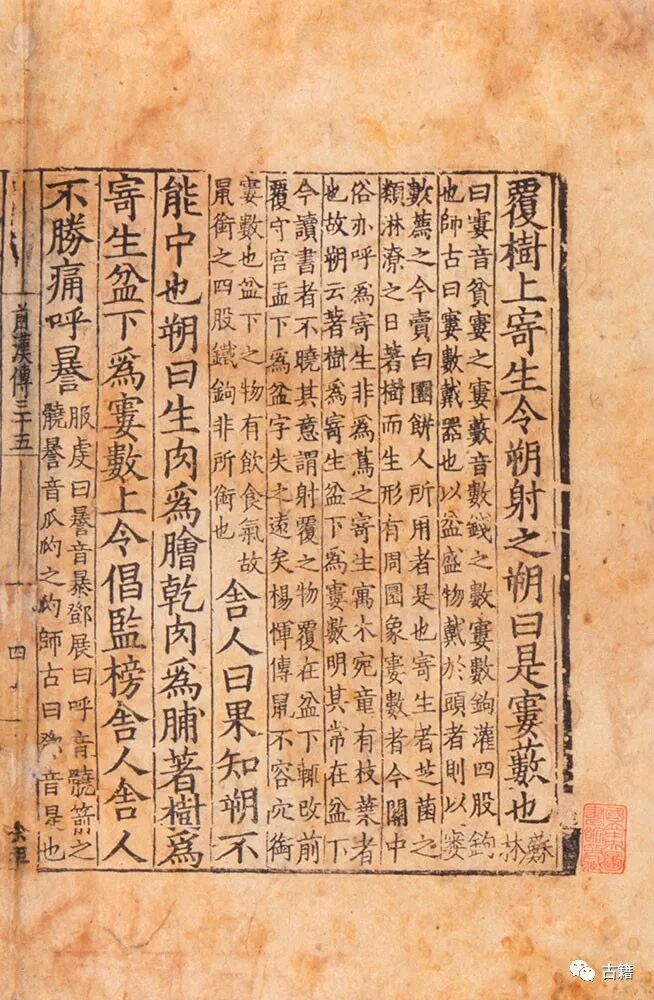 覆樹上寄生令朔射之朔曰是寠藪也蘇林
曰寠音貧寠之寠藪音數錢之數寠數鉤灌四股鉤
也師古曰寠數戴器也以盆盛物戴於頭者則以寠
數薦之今賣白團餅人所用者是也寄生者芝菌之
類淋潦之日著樹而生形有周圜象寠數者今關中
俗亦呼爲寄生非爲蔦之寄生寓木宛童有枝葉者
也故朔云著樹爲寄生盆下爲寠數明其常在盆下
今讀書者不曉其意謂射覆之物覆在盆下輒改前
覆守宮盂下爲盆字失之遠矣楊惲傳鼠不容穴銜
寠數也盆下之物有飲食氣故
鼠銜之四股鐵鉤非所銜也
舍人曰果知朔不
能中也朔曰生肉爲膾乾肉爲脯著樹爲
寄生盆下爲寠數上令倡監榜舍人舍人
不勝痛呼謈
服虔曰謈音暴鄧展曰呼音髐箭之
髐謈音瓜瓝之瓝師古曰鄧音是也
前漢傳三十五
四
古籍